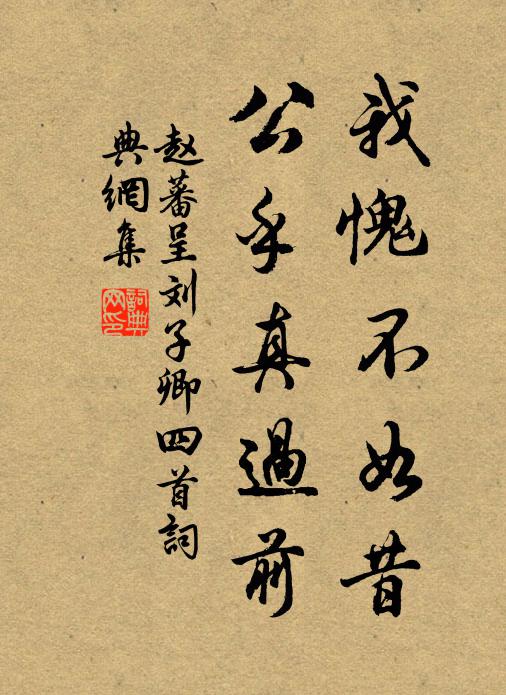 我愧不如昔
公乎真過前
赵蕃呈刘子卿四首詞
典網集
詞典
网印